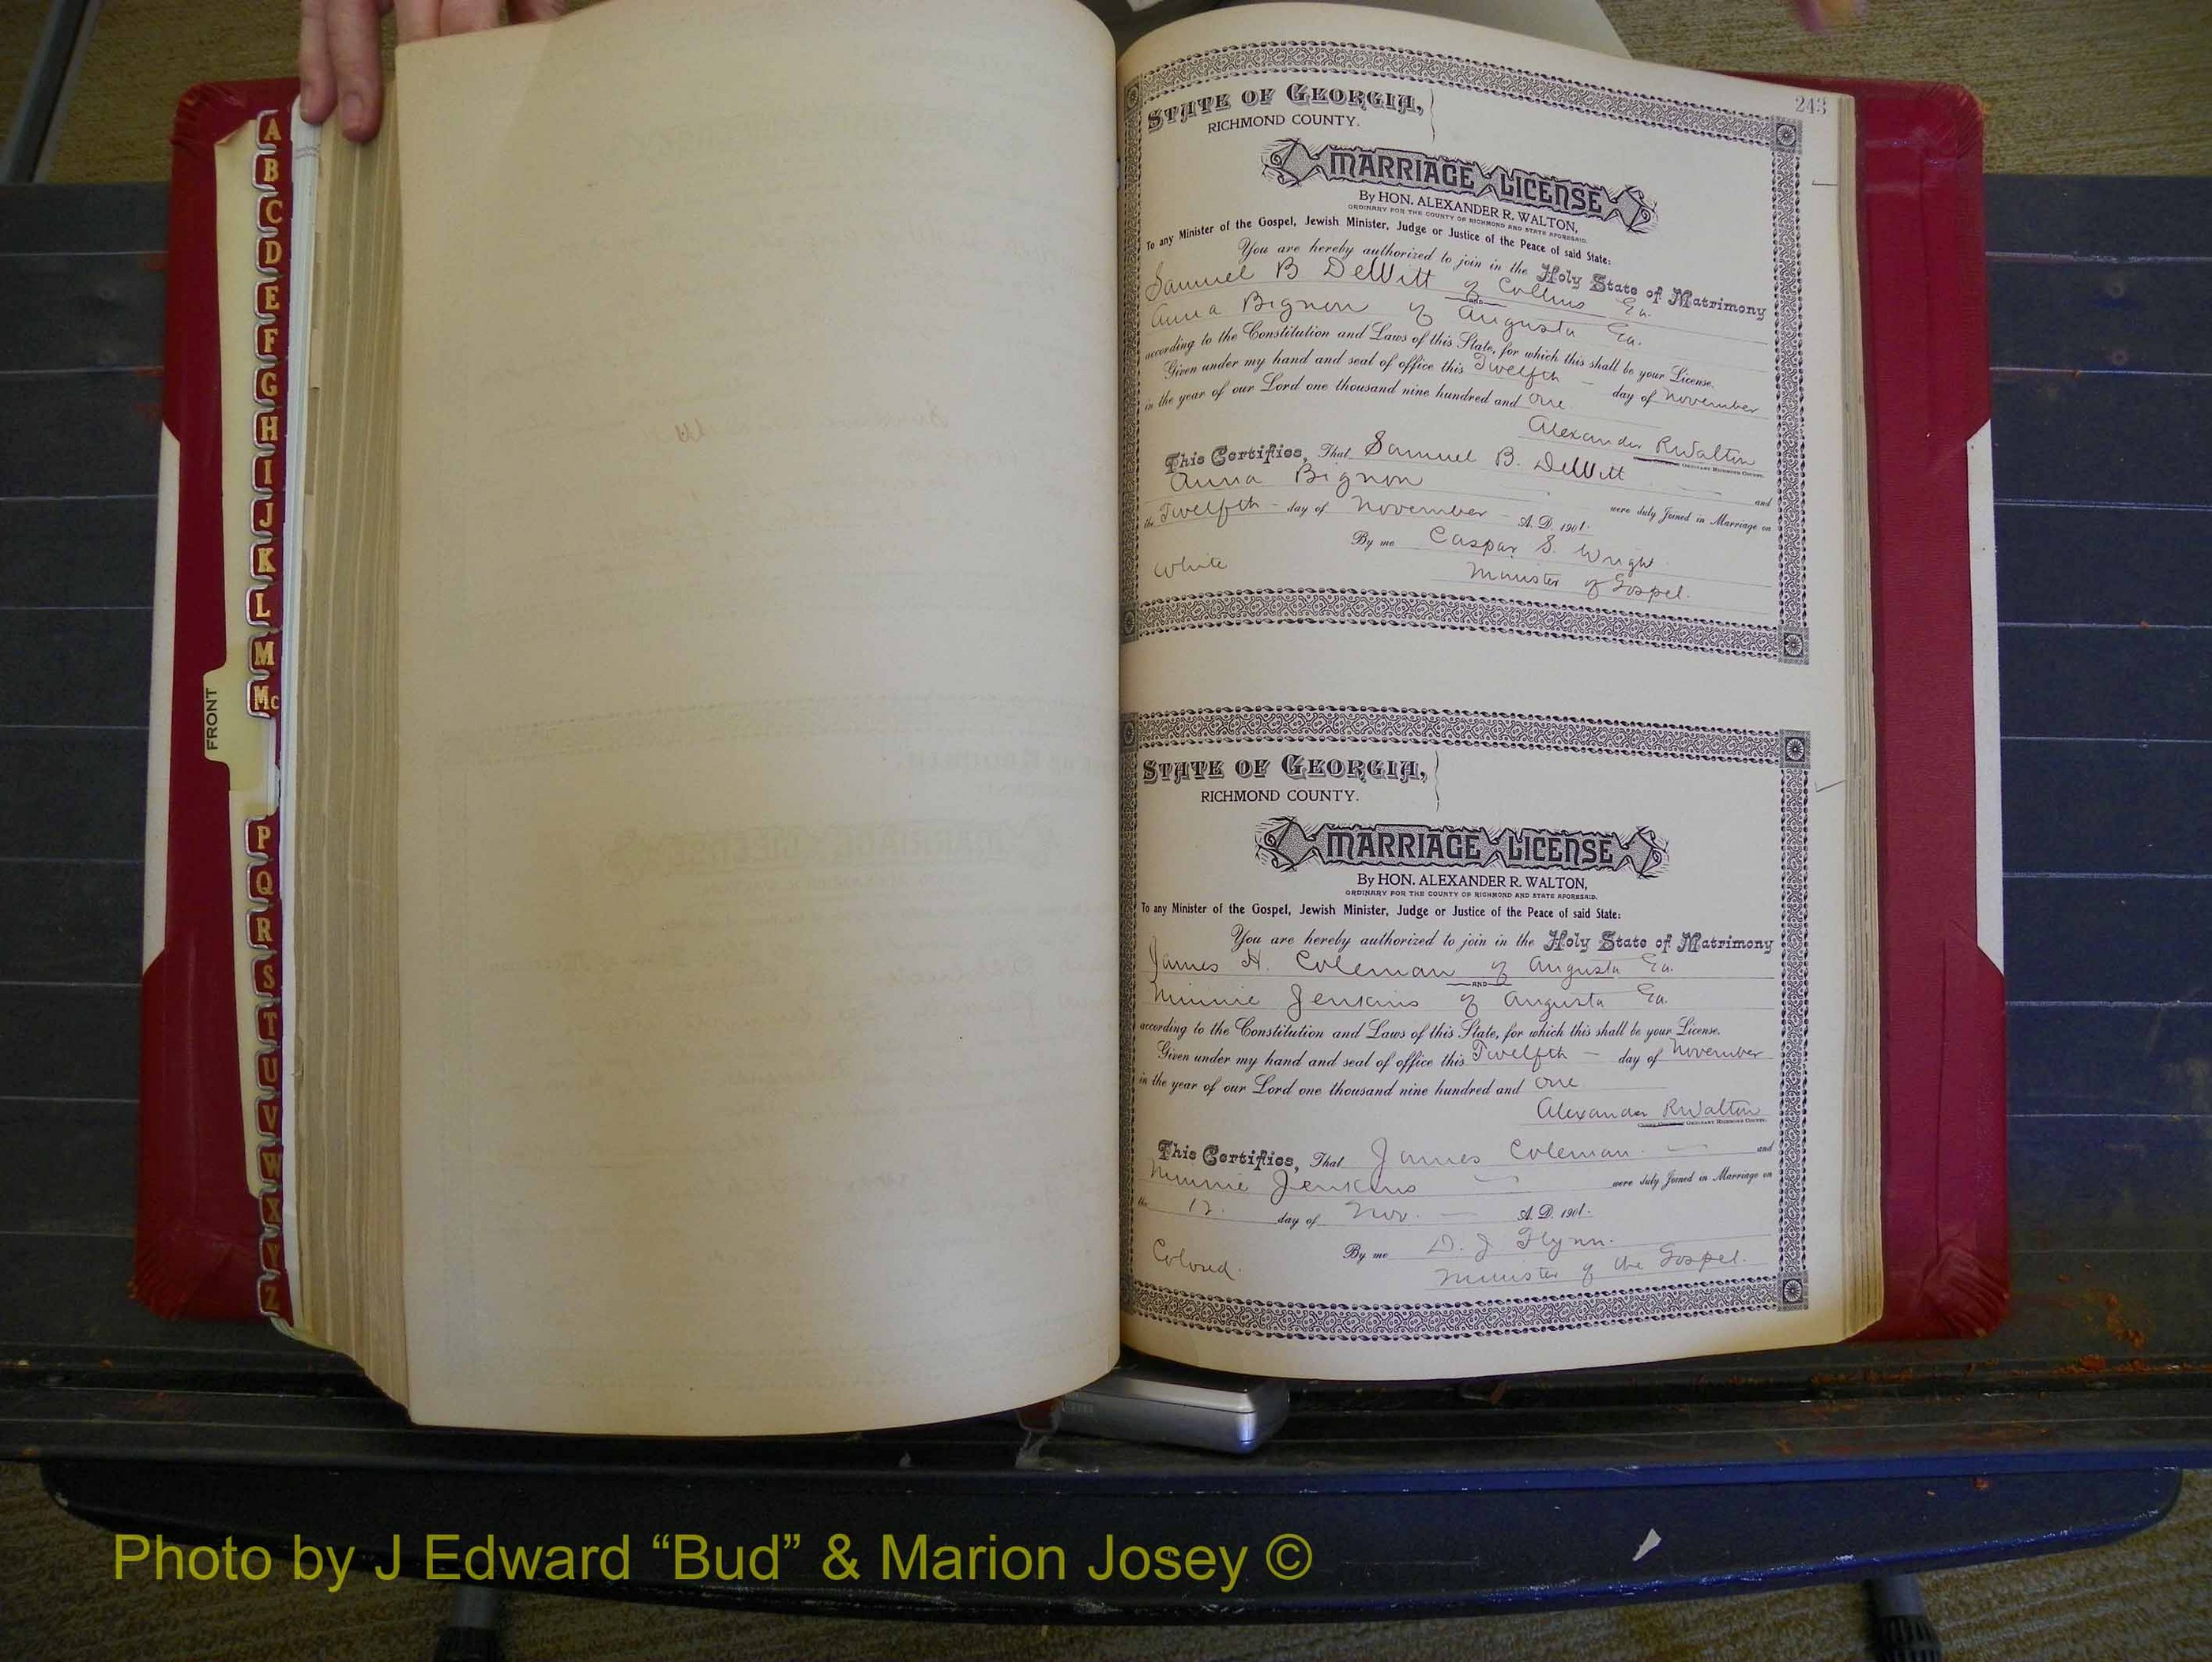 A
B
C
D
E
F
G
H
I
J
K
L
M
Mc
FRONT
P
Q
R
S
T
U
V
W
X
Y
Z
243
STATE OF GEORGIA,
RICHMOND COUNTY.
MARRIAGE LICENSE
By HON. ALEXANDER R. WALTON,
ORDINARY FOR THE COUNTY OF RICHMOND AND STATE AFORESAID.
To any Minister of the Gospel, Jewish Minister, Judge or Justice of the Peace of said State:
You are hereby authorized to join in the Holy State of Matrimony
Samuel B DeWitt of Collins Ga.
AND
Anna Bignon of Augusta Ga.
according to the Constitution and Laws of this State, for which this shall be your License.
Given under my hand and seal of office this Twelfth day of November
in the year of our Lord one thousand nine hundred and one
Alexander R Walton
ORDINARY RICHMOND COUNTY.
This Certifies, That Samuel B. DeWitt and
Anna Bignon were duly Joined in Marriage on
the Twelfth day of November A. D. 1901.
By me Caspar S. Wright
White Minister of Gospel.
STATE OF GEORGIA,
RICHMOND COUNTY.
MARRIAGE LICENSE
By HON. ALEXANDER R. WALTON,
ORDINARY FOR THE COUNTY OF RICHMOND AND STATE AFORESAID.
To any Minister of the Gospel, Jewish Minister, Judge or Justice of the Peace of said State:
You are hereby authorized to join in the Holy State of Matrimony
James H. Coleman of Augusta Ga.
AND
Minnie Jenkins of Augusta Ga.
according to the Constitution and Laws of this State, for which this shall be your License.
Given under my hand and seal of office this Twelfth day of November
in the year of our Lord one thousand nine hundred and one
Alexander R Walton
ORDINARY RICHMOND COUNTY.
This Certifies, That James Coleman and
Minnie Jenkins were duly Joined in Marriage on
the 12. day of Nov. A. D. 1901.
By me D. J Flynn.
Colored. Minister of the Gospel.
Photo by J Edward “Bud” & Marion Josey ©